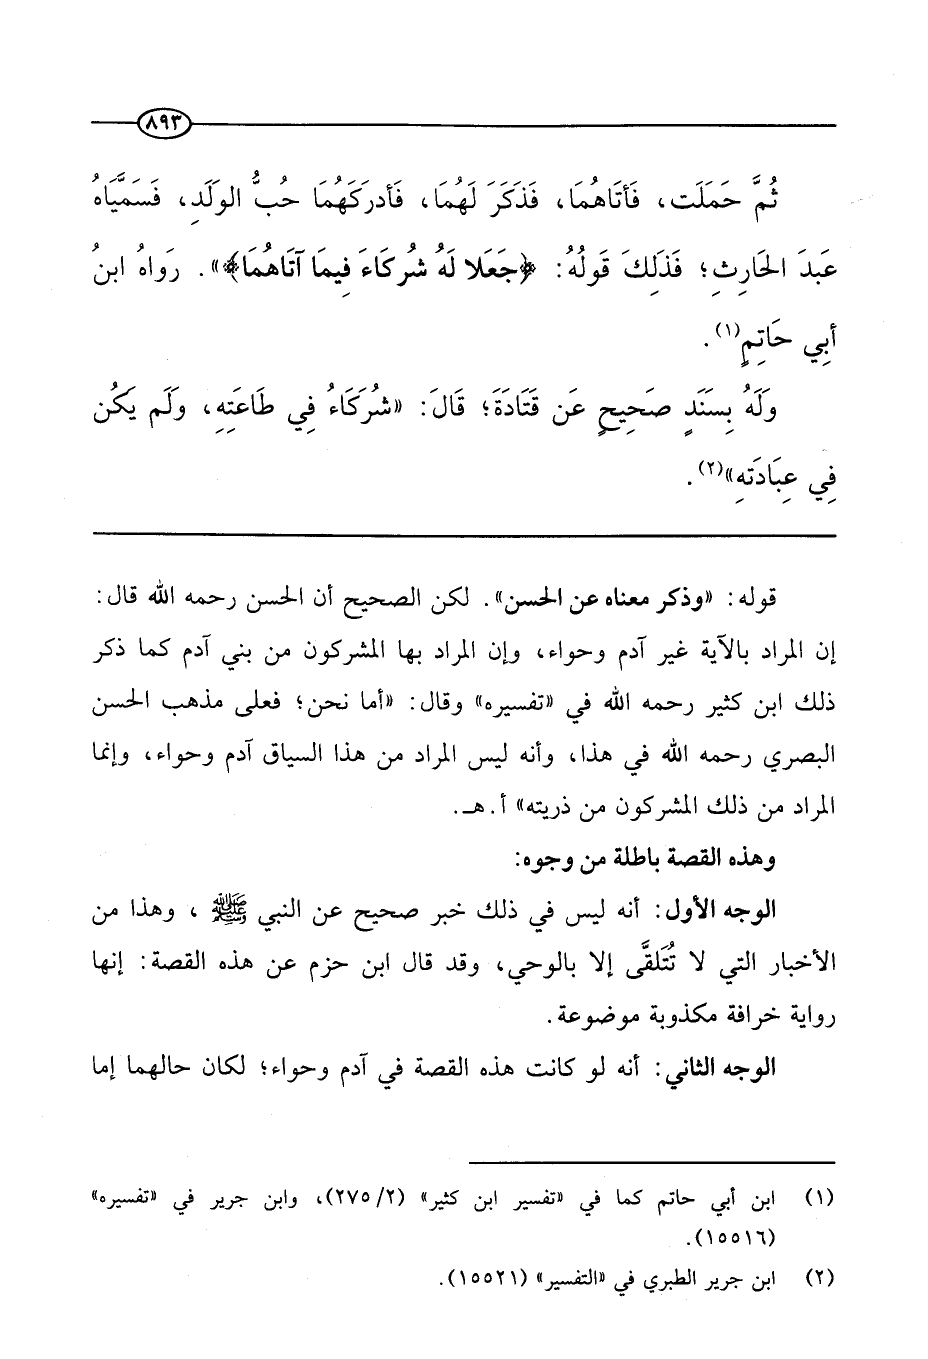 ٨٩٣
ثُمَّ حَمَلَت، فَأَتَاهُمَا، فَذَكَرَ لَهُمَا، فَأَدرَكَهُمَا حُبُّ الوَلَدِ، فَسَمَّيَاهُ
عَبدَ الحَارِثِ؛ فَذَلِكَ قَولُهُ: ﴿جَعَلا لَهُ شُركَاءَ فِيمَا آتَاهُمَا﴾». رَواهُ ابنُ
أَبِي حَاتِمٍ(١).
وَلَهُ بِسَنَدٍ صَحِيحٍ عَن قَتَادَةَ؛ قَالَ: «شُرَكَاءُ فِي طَاعَتِهِ، وَلَم يَكُن
فِي عِبَادَتِهِ»(٢).
قوله: «وذكر معناه عن الحسن». لكن الصحيح أن الحسن رحمه الله قال:
إن المراد بالآية غير آدم وحواء، وإن المراد بها المشركون من بني آدم كما ذكر
ذلك ابن كثير رحمه الله في «تفسيره» وقال: «أما نحن؛ فعلى مذهب الحسن
البصري رحمه الله في هذا، وأنه ليس المراد من هذا السياق آدم وحواء، وإنما
المراد من ذلك المشركون من ذريته» أ.هـ.
وهذه القصة باطلة من وجوه:
الوجه الأول: أنه ليس في ذلك خبر صحيح عن النبي ﷺ ، وهذا من
الأخبار التي لا تُتَلقَّى إلا بالوحي، وقد قال ابن حزم عن هذه القصة: إنها
رواية خرافة مكذوبة موضوعة.
الوجه الثاني: أنه لو كانت هذه القصة في آدم وحواء؛ لكان حالهما إما
(١) ابن أبي حاتم كما في «تفسير ابن كثير» (٢/٢٧٥)، وابن جرير في «تفسيره»
(١٥٥١٦).
(٢) ابن جرير الطبري في «التفسير» (١٥٥٢١).